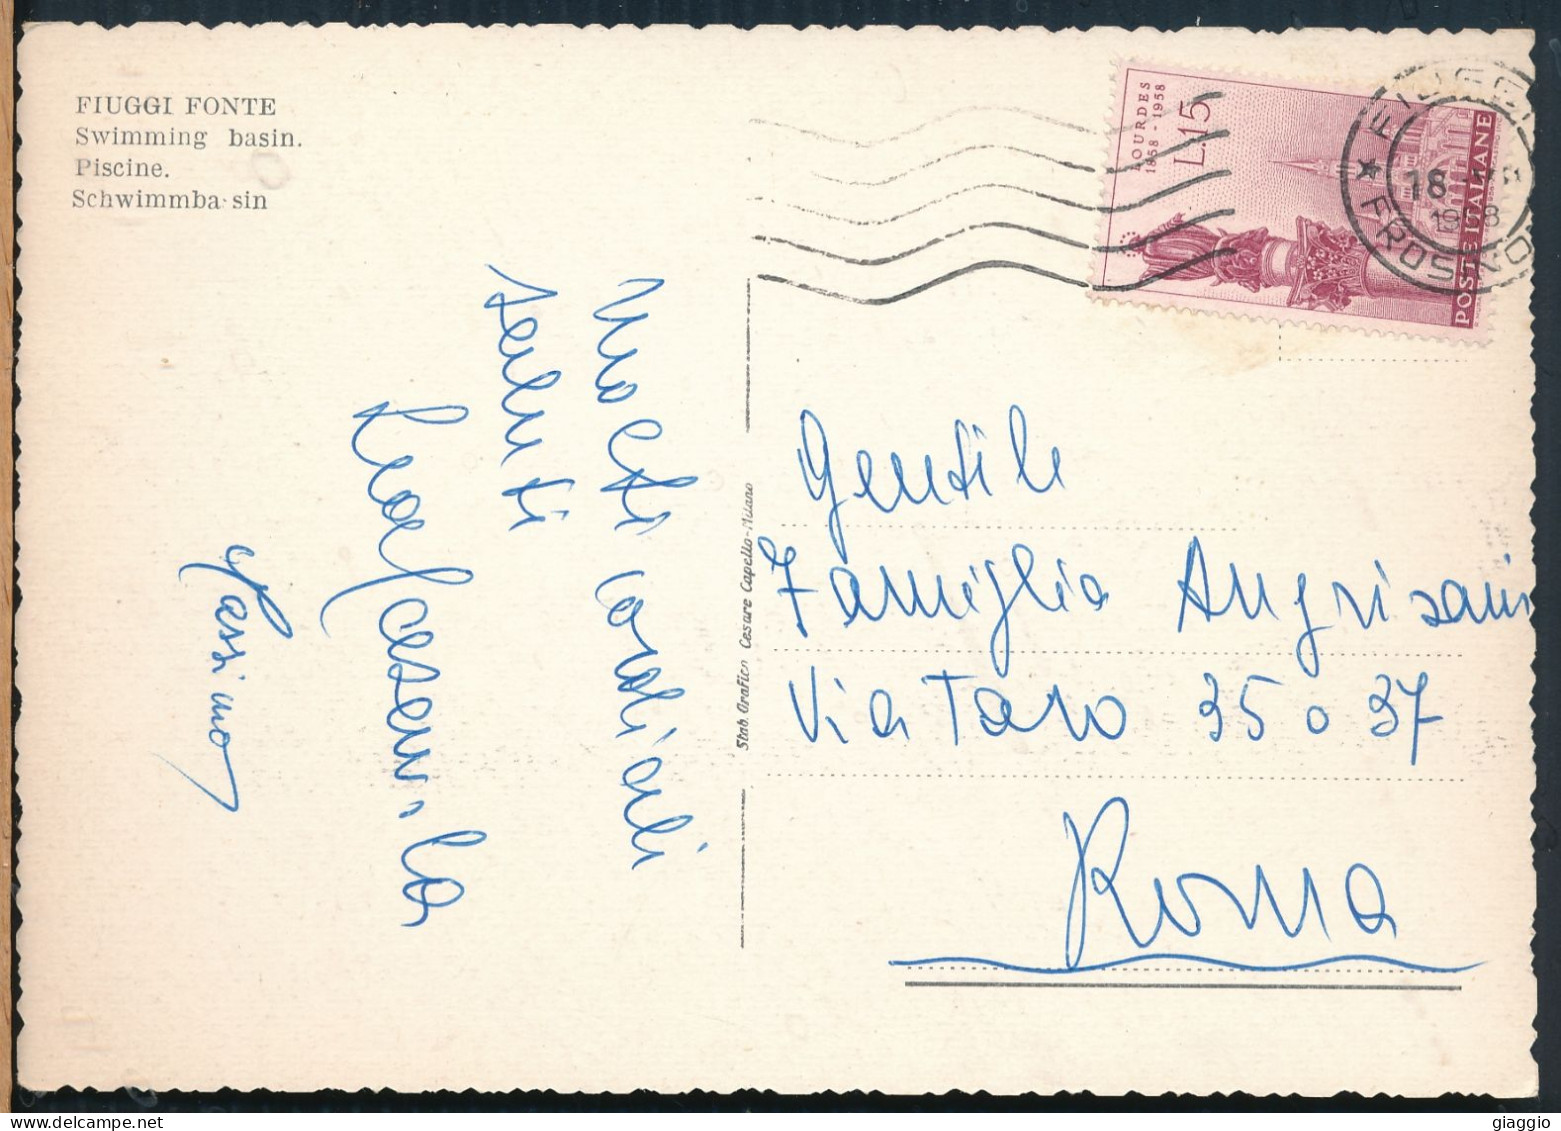 FIUGGI FONTE
Swimming basin.
Piscine.
Schwimmba sin
LOURDES
1858 - 1958
L.15
POSTE ITALIANE
FIUGGI
★ FROSINO
18
1958
Molti cordiali
saluti
Massimo
Stab. Grafico Cesare Capello-Milano
Gentile
Famiglia Angrisani
Via Taro 35 o 37
Roma
giaggio